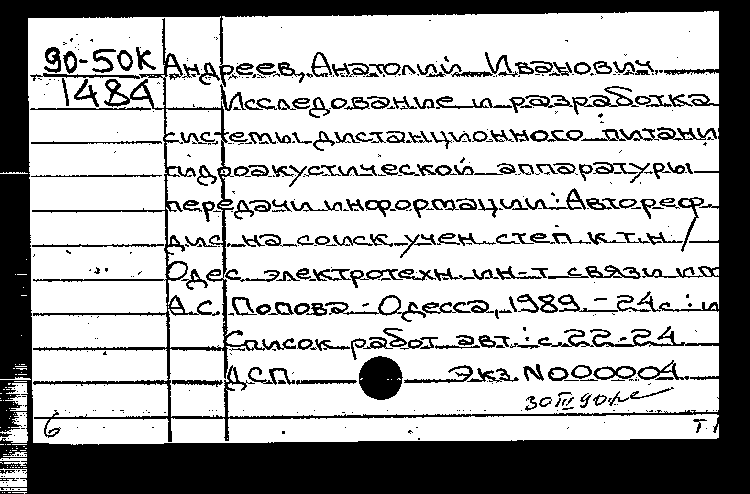 90-50К Андреев, Анатолий Иванович
1484 Исследование и разработка
системы дистанционного питани
гидроакустической аппаратуры
передачи информации: Автореф.
дис. на соиск. учен. степ. к.т.н. /
Одес. электротехн. ин-т связи им
А.С. Попова - Одесса, 1989. - 24с.: и
Список работ авт.: с.22-24
ДСП Экз. N000004.
30 III 90г.
6 Т